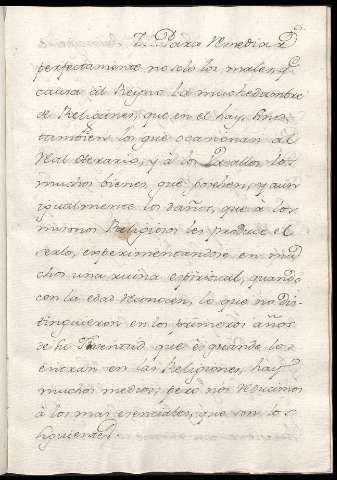 7. Para Remediar
perfectamente no solo los males, q.e
causa al Reyno la muchedumbre
de Religiones, que en el hay, sino
tambien los que ocacionan al
Real Herario, y à los Vasallos los
muchos bienes que posehen, y aun
igualmente los daños, que à los
mismos Religiosos les produce el
serlo, experimentandose en mu
chos una ruina espiritual, quando
con la edad Reconocen, lo que no dis
tinguieron en los primeros años
de su Jubentud, que es quando los
entran en las Religiones, hay
muchos medios; pero nos Reducimos
à los mas esenciales, que son los
siguientes